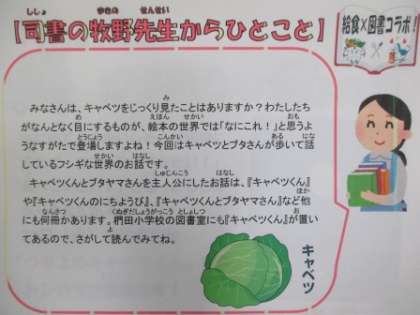 【司書の牧野先生からひとこと】
給食×図書コラボ!
みなさんは、キャベツをじっくり見たことはありますか?わたしたち
がなんとなく目にするものが、絵本の世界では「なにこれ!」と思うよ
うなすがたで登場しますよね!今回はキャベツとブタさんが歩いて話
しているフシギな世界のお話です。
キャベツくんとブタヤマさんを主人公にしたお話は、『キャベツくん』
や『キャベツくんのにちようび』、『キャベツくんとブタヤマさん』など他
にも何冊かあります。椚田小学校の図書室にも『キャベツくん』が置い
てあるので、さがして読んでみてね。
キャベツ